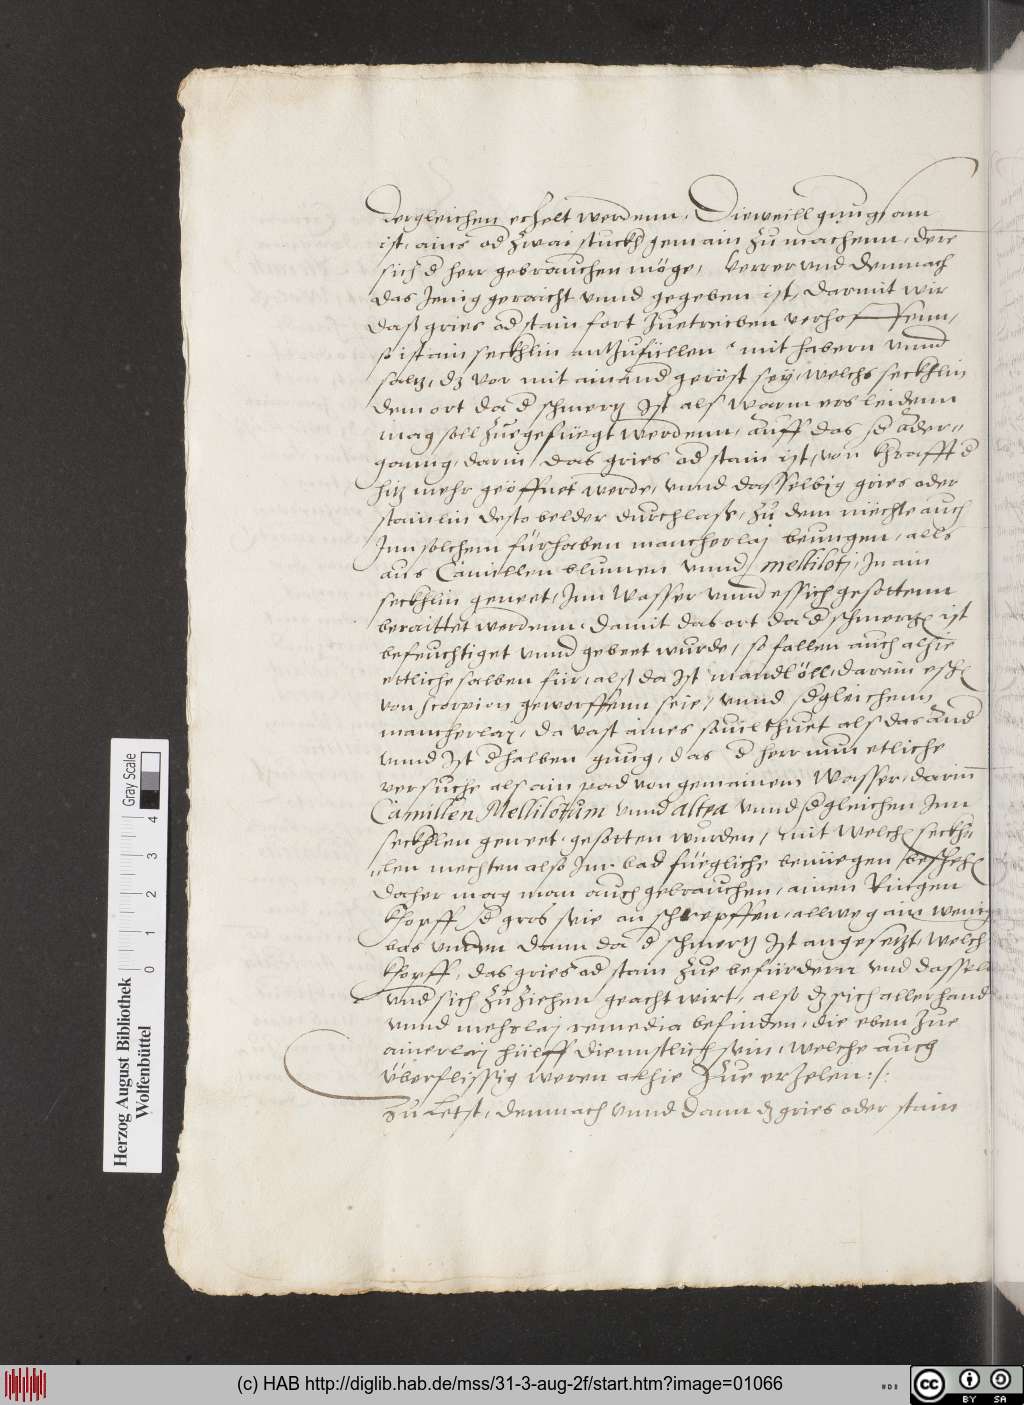 dergleichen erholt werdenn, Dieweill gnug sam
ist, ains od zwai stuckh gemain zu machenn, dere
sich d herr gebrauchen möge, Verrer vnd demnach
das Jenig geraicht vnnd gegeben ist, darmit wir
das gries od stain fort Zuetreiben verhoffenn,
so ist ain seckhlin anzufüllen mit habern vnnd
saltz, dz vor mit ainand geröst seÿ, welchs seckhlin
dem ort da d schmertz Ist als warm ers leidenn
mag soll zuegefüegt werdenn, auff das d ader,,
ganng, darin das gries od stain ist, von khrafft d
hitz mehr geöffnet werde, vnnd dasselbig gries oder
stainlin desto belder durchlass, zu dem mechte auch
Inn solchem fürhaben mancherlaj beungen, alls
aus Camillen blumen vnnd mellilotj, In ain
seckhlin geneet, Inn Wasser vnnd essich gesottenn
beraittet werdenn, damit das ort da d schmertz ist
befeuchtiget vnnd gebeet wurde, so fallen auch alhie
ettliche salben für, alß da Ist mandl öll, darein
von scorpion geworffenn seie, vnnd dgleichenn
mancherlaj, da vast aines souil thuet als das and
vnnd Ist dhalben gnug, das d herr nun etliche
versuche als ain pad von gemainem Wasser, darin
Camillen Mellilotum vnnd altea vnnd dgleichen Inn
seckhlen geneet, gesotten wurden, mit welch seckh
,,len mechten also Im bad füegliche benüegen
daher mag man auch gebrauchen, ainen Ringen
khopff d gros wie an schrepffen, allweg ain wenig
bas vnden dann da d schmertz Ist angesetzt, welch
khopff, das gries od stain zue befürdern vnd
vnd sich zu ziehen geacht wirt, also dz sich allerhand
vnnd mehrlaj remedia befinden, die eben zue
ainerlaj hülff dienstlich sein, welche auch
überflissig weren alhie zue erzelen:/:
Zu Letst, demnach vnnd dann dz gries oder stain
Herzog August Bibliothek
Wolfenbüttel
0 1 2 3 4
Gray Scale
(c) HAB http://diglib.hab.de/mss/31-3-aug-2f/start.htm?image=01066
cc BY SA